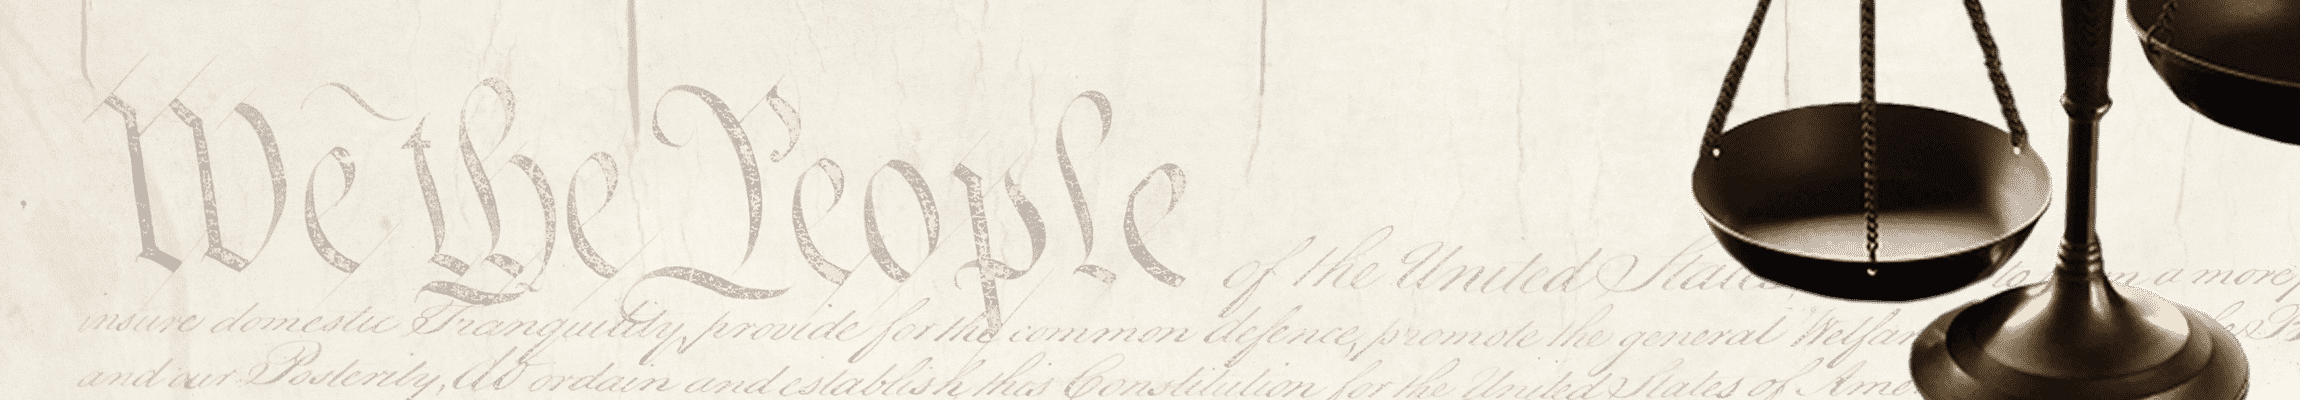 We the People of the United States, to form a more
insure domestic Tranquility, provide for the common defence, promote the general Welfar
and our Posterity, do ordain and establish this Constitution for the United States of Ame